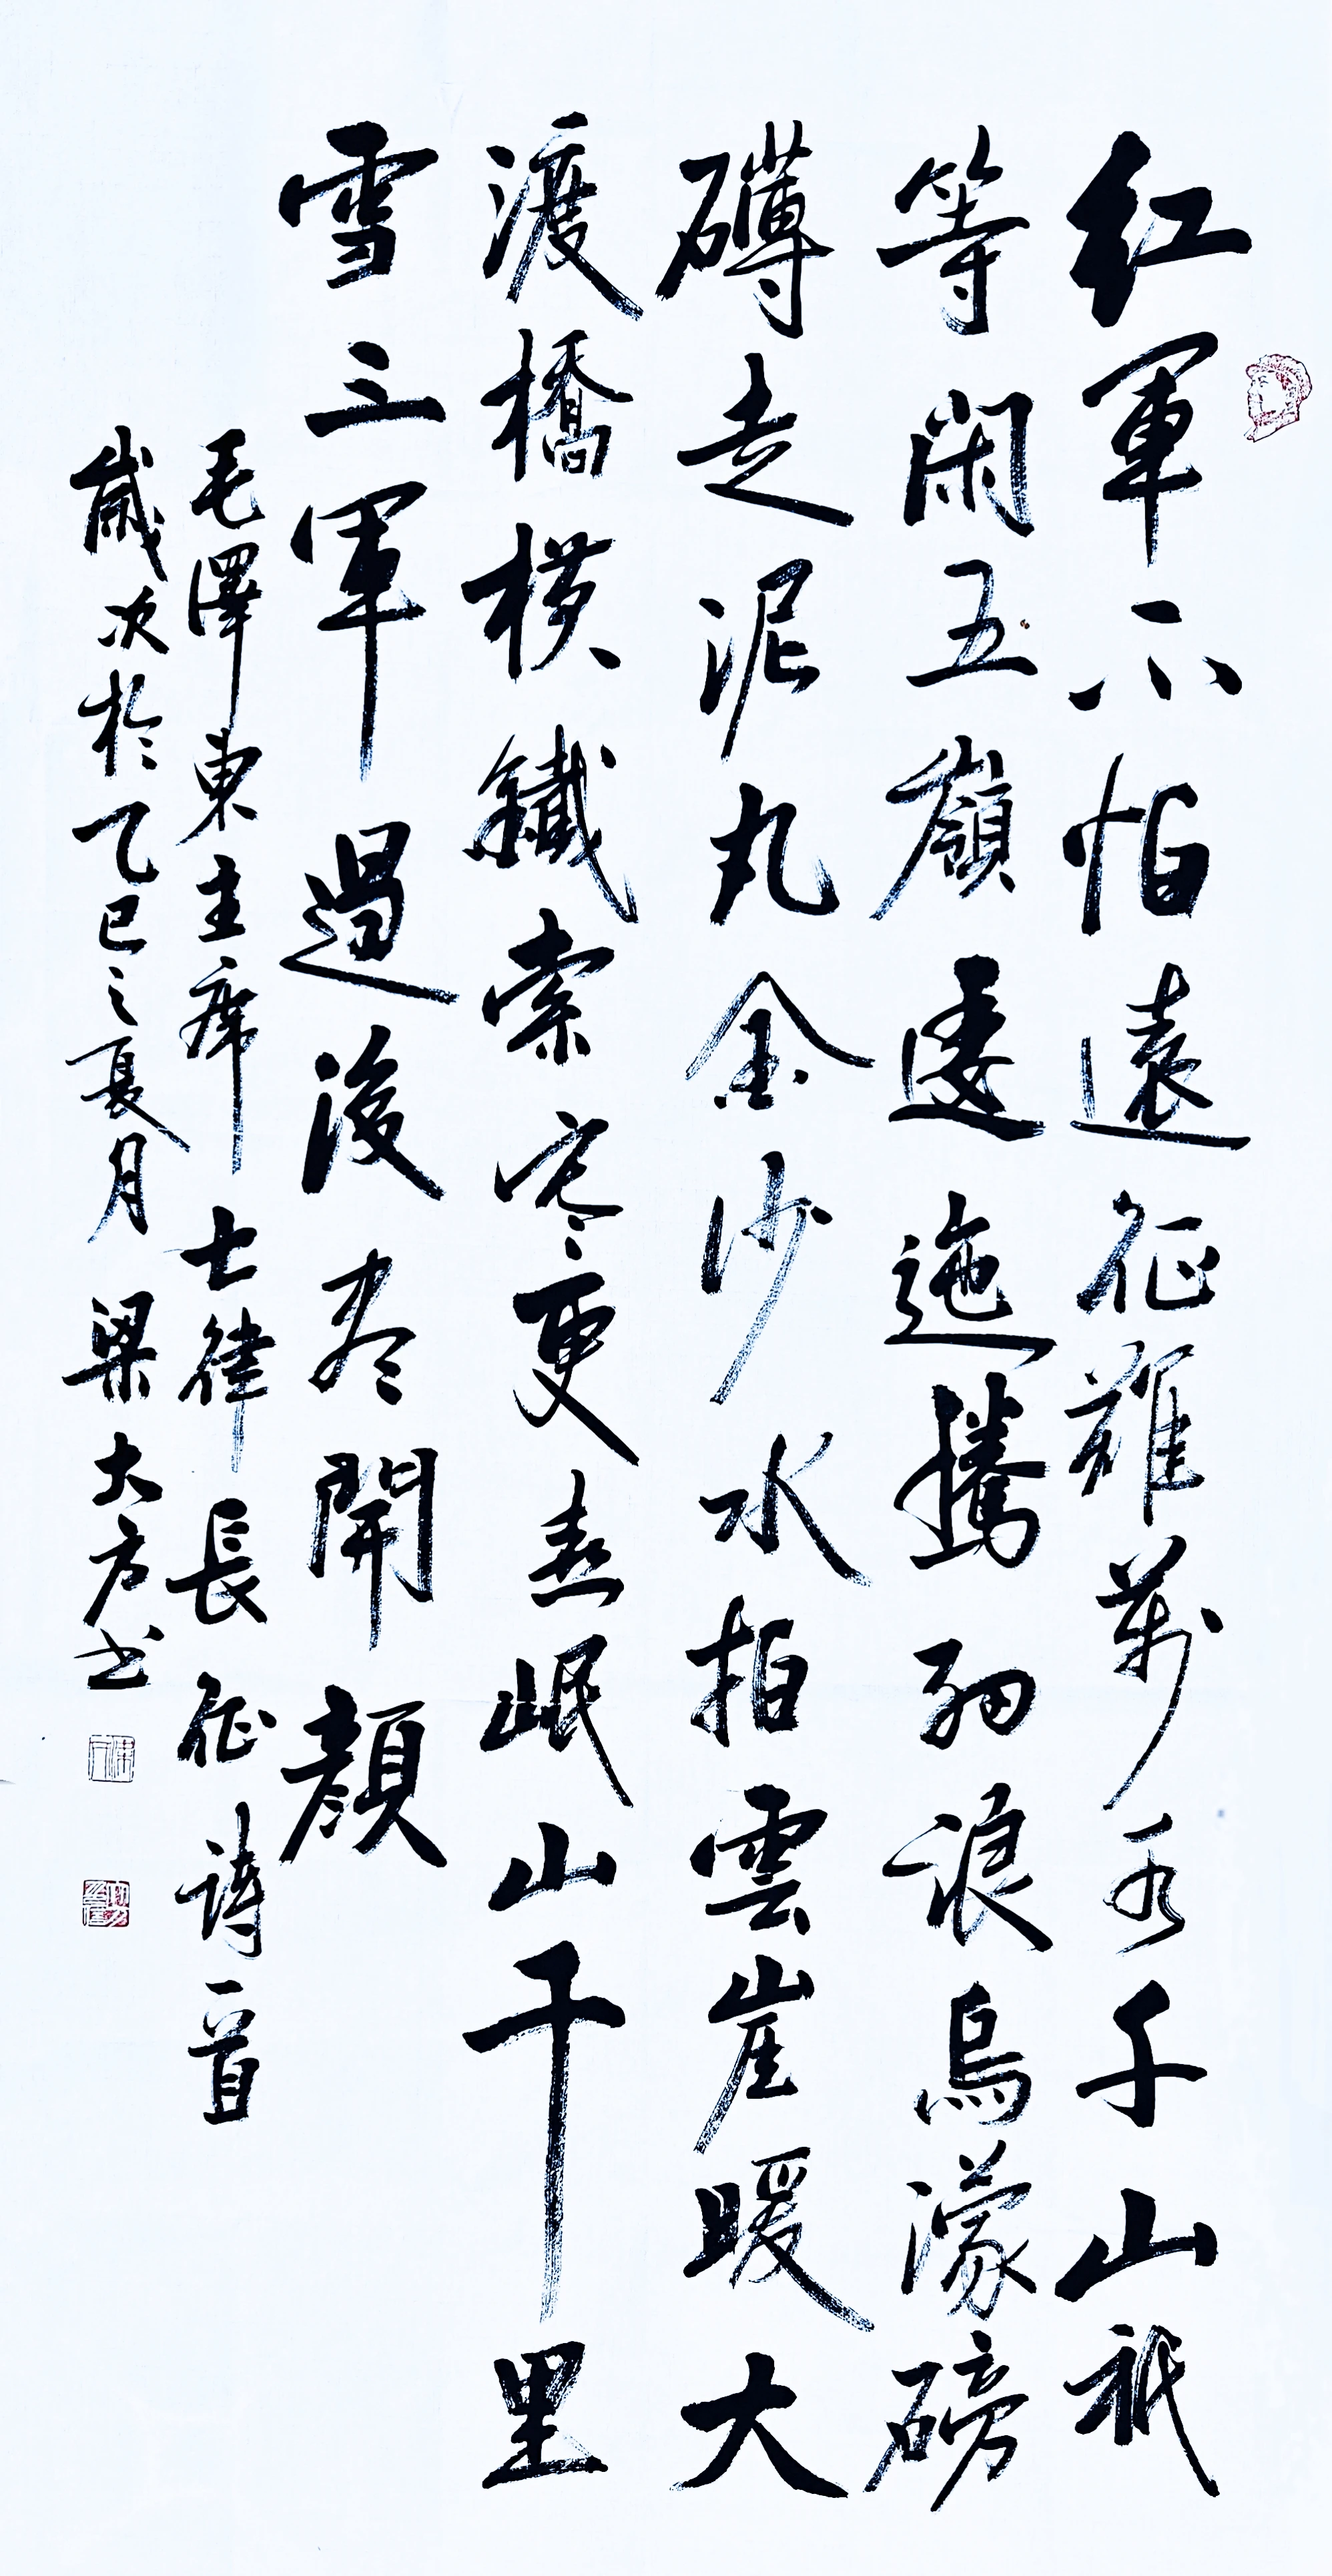 紅軍不怕遠征難萬水千山祇
等閑五嶺逶迤騰細浪烏濛磅
礴走泥丸金沙水拍雲崖暖大
渡橋橫鐵索寒更喜岷山千里
雪三軍過後盡開顏
毛澤東主席七律長征詩一首
歲次於乙巳之夏月梁大方书